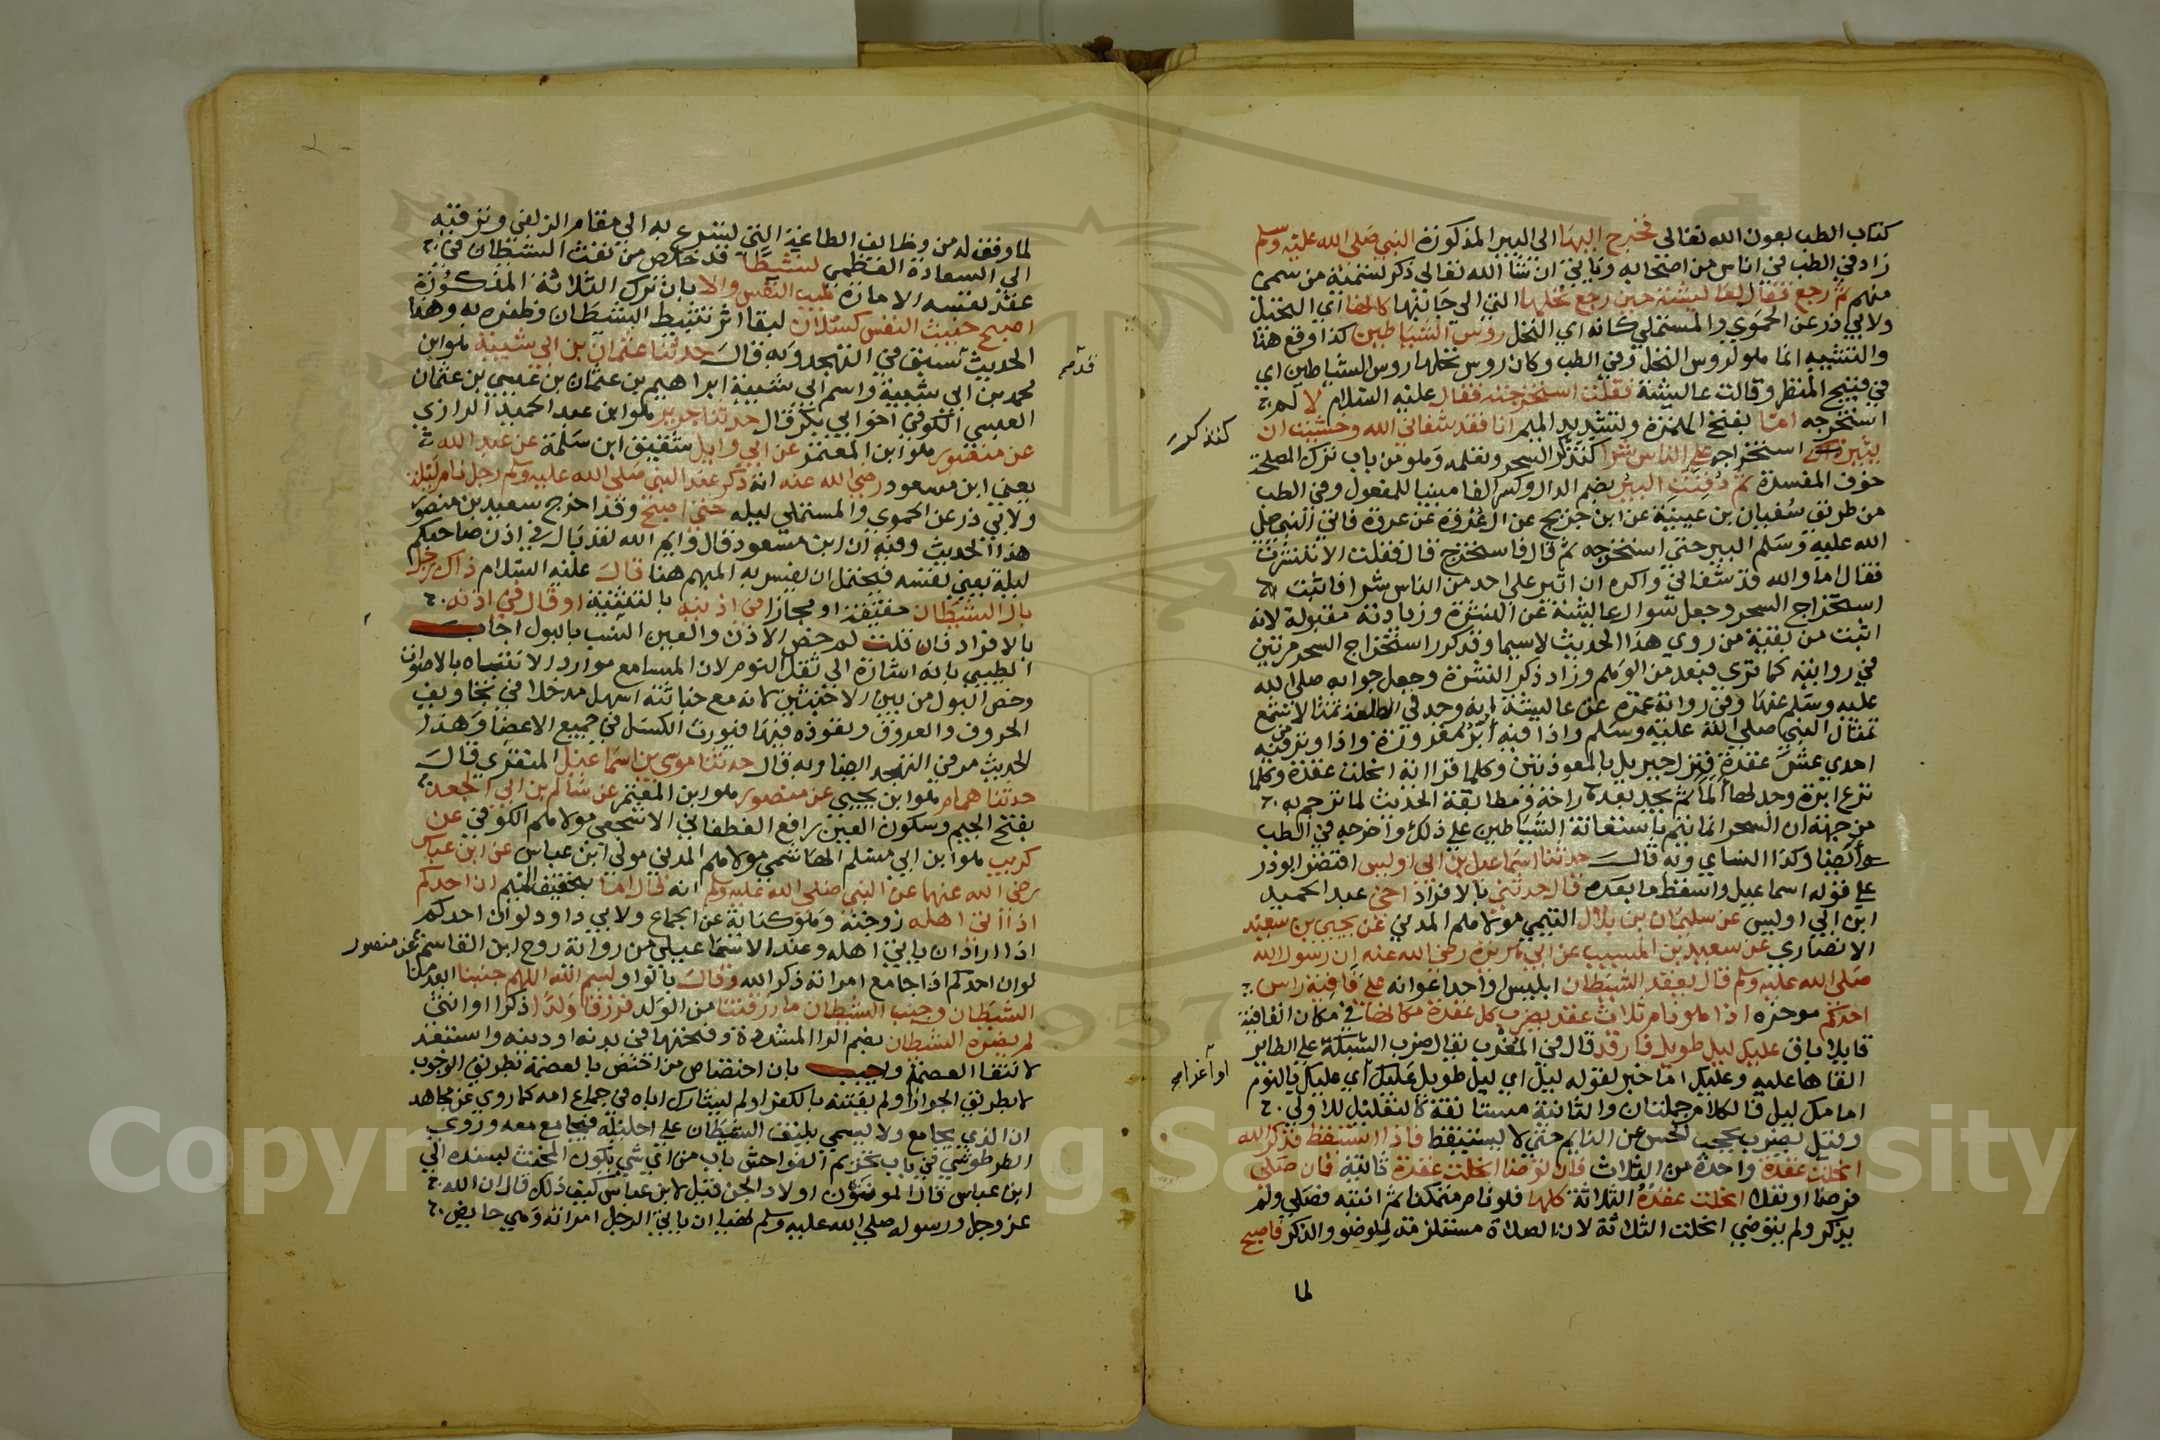 كتاب الطب بعون الله تعالى فخرج اليها الى البير المذكورة النبي صلى الله عليه وسلم
زاد في الطب في اناس من اصحابه وياتي ان شا الله تعالى ذكر تسمية من سمى
منهم ثم رجع فقال لعايشة حين رجع نخلها التي الى جانبها كانها اي النخل
ولابي ذر عن الحموي والمستملي كانه اي النخل روس الشياطين كذا وقع هنا
والتشبيه انما هو لروس النخل وفي الطب وكان روس نخلها روس الشياطين اي
في قبح المنظر وقالت عايشة فقلت استخرجته فقال عليه السلام لا لم
استخرجه اما بفتح الهمزة وتشديد الميم انا فقد شفاني الله وخشيت ان
يثير استخراجه على الناس شرا كتذكر السحر وتعلمه وهو من باب ترك المصلحة
خوف المفسدة ثم دفنت البير بضم الدال وكسر الفا مبنيا للمفعول وفي الطب
من طريق سفيان بن عيينة عن ابن جريج عن ال عروة عن عروة فاتى النبي صلى
الله عليه وسلم البير حتى استخرجه ثم قال فاستخرج قال فقلت الا تنشرت
فقال اما والله قد شفاني واكره ان اثير على احد من الناس شرا فاثبت
استخراج السحر وجعل سوال عايشة عن النشرة وزيادته مقبولة لانه
اثبت من بقية من روى هذا الحديث لاسيما وقد كرر استخراج السحر مرتين
في روايته كما ترى فبعد من الوهم وزاد ذكر النشرة وجعل جوابه صلى الله
عليه وسلم عنها وفي رواية عمرة عن عايشة انه وجد في الطلعة تمثالا من شمع
تمثال النبي صلى الله عليه وسلم واذا فيه ابر مغروزة واذا وتر فيه
احدى عشر عقدة فنزل جبريل بالمعوذتين وكلما قرا اية انحلت عقدة وكلما
نزع ابرة وجد لها الما ثم يجد بعدها راحة ومطابقة الحديث لما ترجم به
من جهة ان السحر انما يتم باستعانة الشياطين على ذلك واخرجه في الطب
ايضا وكذا النساي وبه قال حدثنا اسماعيل بن ابي اويس اقتصر ابو ذر
على قوله اسماعيل واسقط ما بعده قال حدثني بالافراد اخي عبد الحميد
ابن ابي اويس عن سليمان بن بلال التيمي مولاهم المدني عن يحيى بن سعيد
الانصاري عن سعيد بن المسيب عن ابي هريرة رضي الله عنه ان رسول الله
صلى الله عليه وسلم قال يعقد الشيطان ابليس او احد اعوانه على قافية راس
احدكم موخره اذا هو نام ثلاث عقد يضرب كل عقدة مكانها في مكان القافية
قايلا باق عليك ليل طويل فارقد قال في المغرب يقال ضرب الشبكة على الطاير
القاها عليه وعليك اما خبر لقوله ليل اي ليل طويل عليك اي عليك بالنوم
امامك ليل فالكلام جملتان والثانية مستانفة كالتعليل للاولى
وقيل يضرب يحجب الحس عن النايم حتى لا يستيقظ فاذا استيقظ فذكر الله
انحلت عقدة واحدة من الثلاث فان توضا انحلت عقدة ثانية فان صلى
فرضا او نفلا انحلت عقده الثلاثة كلها فلو نام متمكنا ثم انتبه فصلى ولم
يذكر ولم يتوضي انحلت الثلاثة لان الصلاة مستلزمة للوضو والذكر فاصبح
لما
لما وفق له من وظايف الطاعة التي تسرع به الى مقام الزلفى وترقيه
الى السعادة العظمى نشيطا قد خلص من نفث الشيطان في
عقد نفسه الامارة طيب النفس والا بان ترك الثلاثة المذكورة
اصبح خبيث النفس كسلان لبقا اثر تثبيط الشيطان وظفره به وهذا
الحديث سبق في التهجد وبه قال حدثنا عثمان بن ابي شيبة هو ابن
محمد بن ابي شيبة واسم ابي شيبة ابراهيم بن عثمان بن عيسى بن عثمان
العبسي الكوفي اخو ابي بكر قال حدثنا جرير هو ابن عبد الحميد الرازي
عن منصور هو ابن المعتمر عن ابي وايل شقيق ابن سلمة عن عبد الله
يعني ابن مسعود رضي الله عنه انه قال ذكر عند النبي صلى الله عليه وسلم رجل نام ليلة
ولابي ذر عن الحموي والمستملي ليله حتى اصبح وقد اخرج سعيد بن منصور
هذا الحديث وفيه ان ابن مسعود قال وايم الله لقد بال في اذن صاحبكم
ليلة يعني نفسه فيحتمل ان يفسر به المبهم هنا قال عليه السلام ذاك رجل
بال الشيطان حقيقة او مجازا في اذنيه بالتثنية او قال في اذنه
بالافراد فان قلت لم خص الاذن والعين انسب بالبول اجاب
الطيبي بانه اشارة الى ثقل النوم لان المسامع موارد الانتباه بالاصوات
وخص البول من بين الاخبثين لانه مع خباثته اسهل مدخلا في تجاويف
الخروق والعروق ونفوذه فيها فيورث الكسل في جميع الاعضا وهذا
الحديث مر في التهجد ايضا وبه قال حدثنا موسى بن اسماعيل المنقري قال
حدثنا همام هو ابن يحيى عن منصور هو ابن المعتمر عن سالم بن ابي الجعد
بفتح الجيم وسكون العين رافع الغطفاني الاشجعي مولاهم الكوفي عن
كريب هو ابن ابي مسلم الهاشمي مولاهم المدني مولى ابن عباس عن ابن عباس
رضي الله عنهما عن النبي صلى الله عليه وسلم انه قال اما بتخفيف الميم ان احدكم
اذا اتى اهله زوجته وهو كناية عن الجماع ولابي داود لو ان احدكم
اذا اراد ان ياتي اهله وعند الاسماعيلي من رواية روح ابن القاسم عن منصور
لو ان احدكم اذا جامع امراته ذكر الله وقال بالواو بسم الله اللهم جنبنا ابعد منا
الشيطان وجنب الشيطان ما رزقتنا من الولد فرزقا ولدا ذكرا او انثى
لم يضره الشيطان بضم الرا المشددة وفتحها في بدنه او دينه واستبعد
لانتفا العصمة واجيب بان اختصاص من اختص بالعصمة بطريق الوجوب
لا بطريق الجواز او لم يفتنه بالكفر او لم يشارك اباه في جماع امه كما روي عن مجاهد
ان الذي يجامع ولا يسمي يلتف الشيطان على احليله فيجامع معه وروى
الطرطوشي في باب تحريم الفواحش باب من اي شي يكون المخنث بسنده الى
ابن عباس قال الموسون اولاد الجن قيل لابن عباس كيف ذلك قال ان الله
عز وجل ورسوله صلى الله عليه وسلم نهيا ان ياتي الرجل امراته وهي حايض